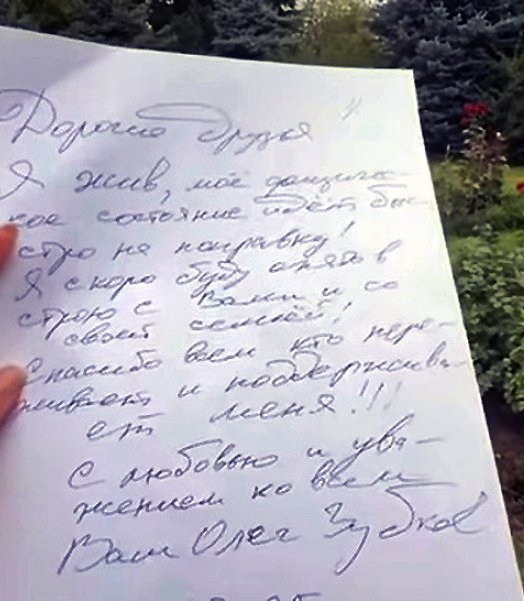 Дорогие друзья
Я жив, моё физичес-
кое состояние идёт бы-
стро на поправку!
Я скоро буду опять в
строю с Вами и со
своей семьёй!
Спасибо всем кто пере-
живает и поддержива-
ет меня!!!
С любовью и ува-
жением ко всем
Ваш Олег Зубков